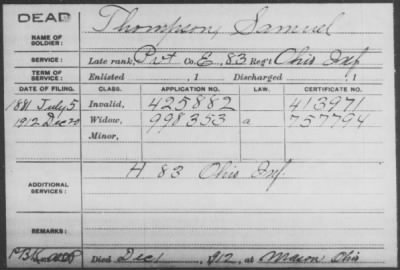 DEAD
NAME OF SOLDIER: Thompson, Samuel
SERVICE: Late rank, Pvt Co. E, 83 Reg't Ohio Inf
TERM OF SERVICE: Enlisted , 1 Discharged , 1
DATE OF FILING. CLASS. APPLICATION NO. LAW. CERTIFICATE NO.
1881 July 5 Invalid, 425882 413971
1912 Dec 20 Widow, 998353 a 757794
Minor,
ADDITIONAL SERVICES: H 83 Ohio Inf.
REMARKS:
Died Dec 1, 912, at Mason, Ohio